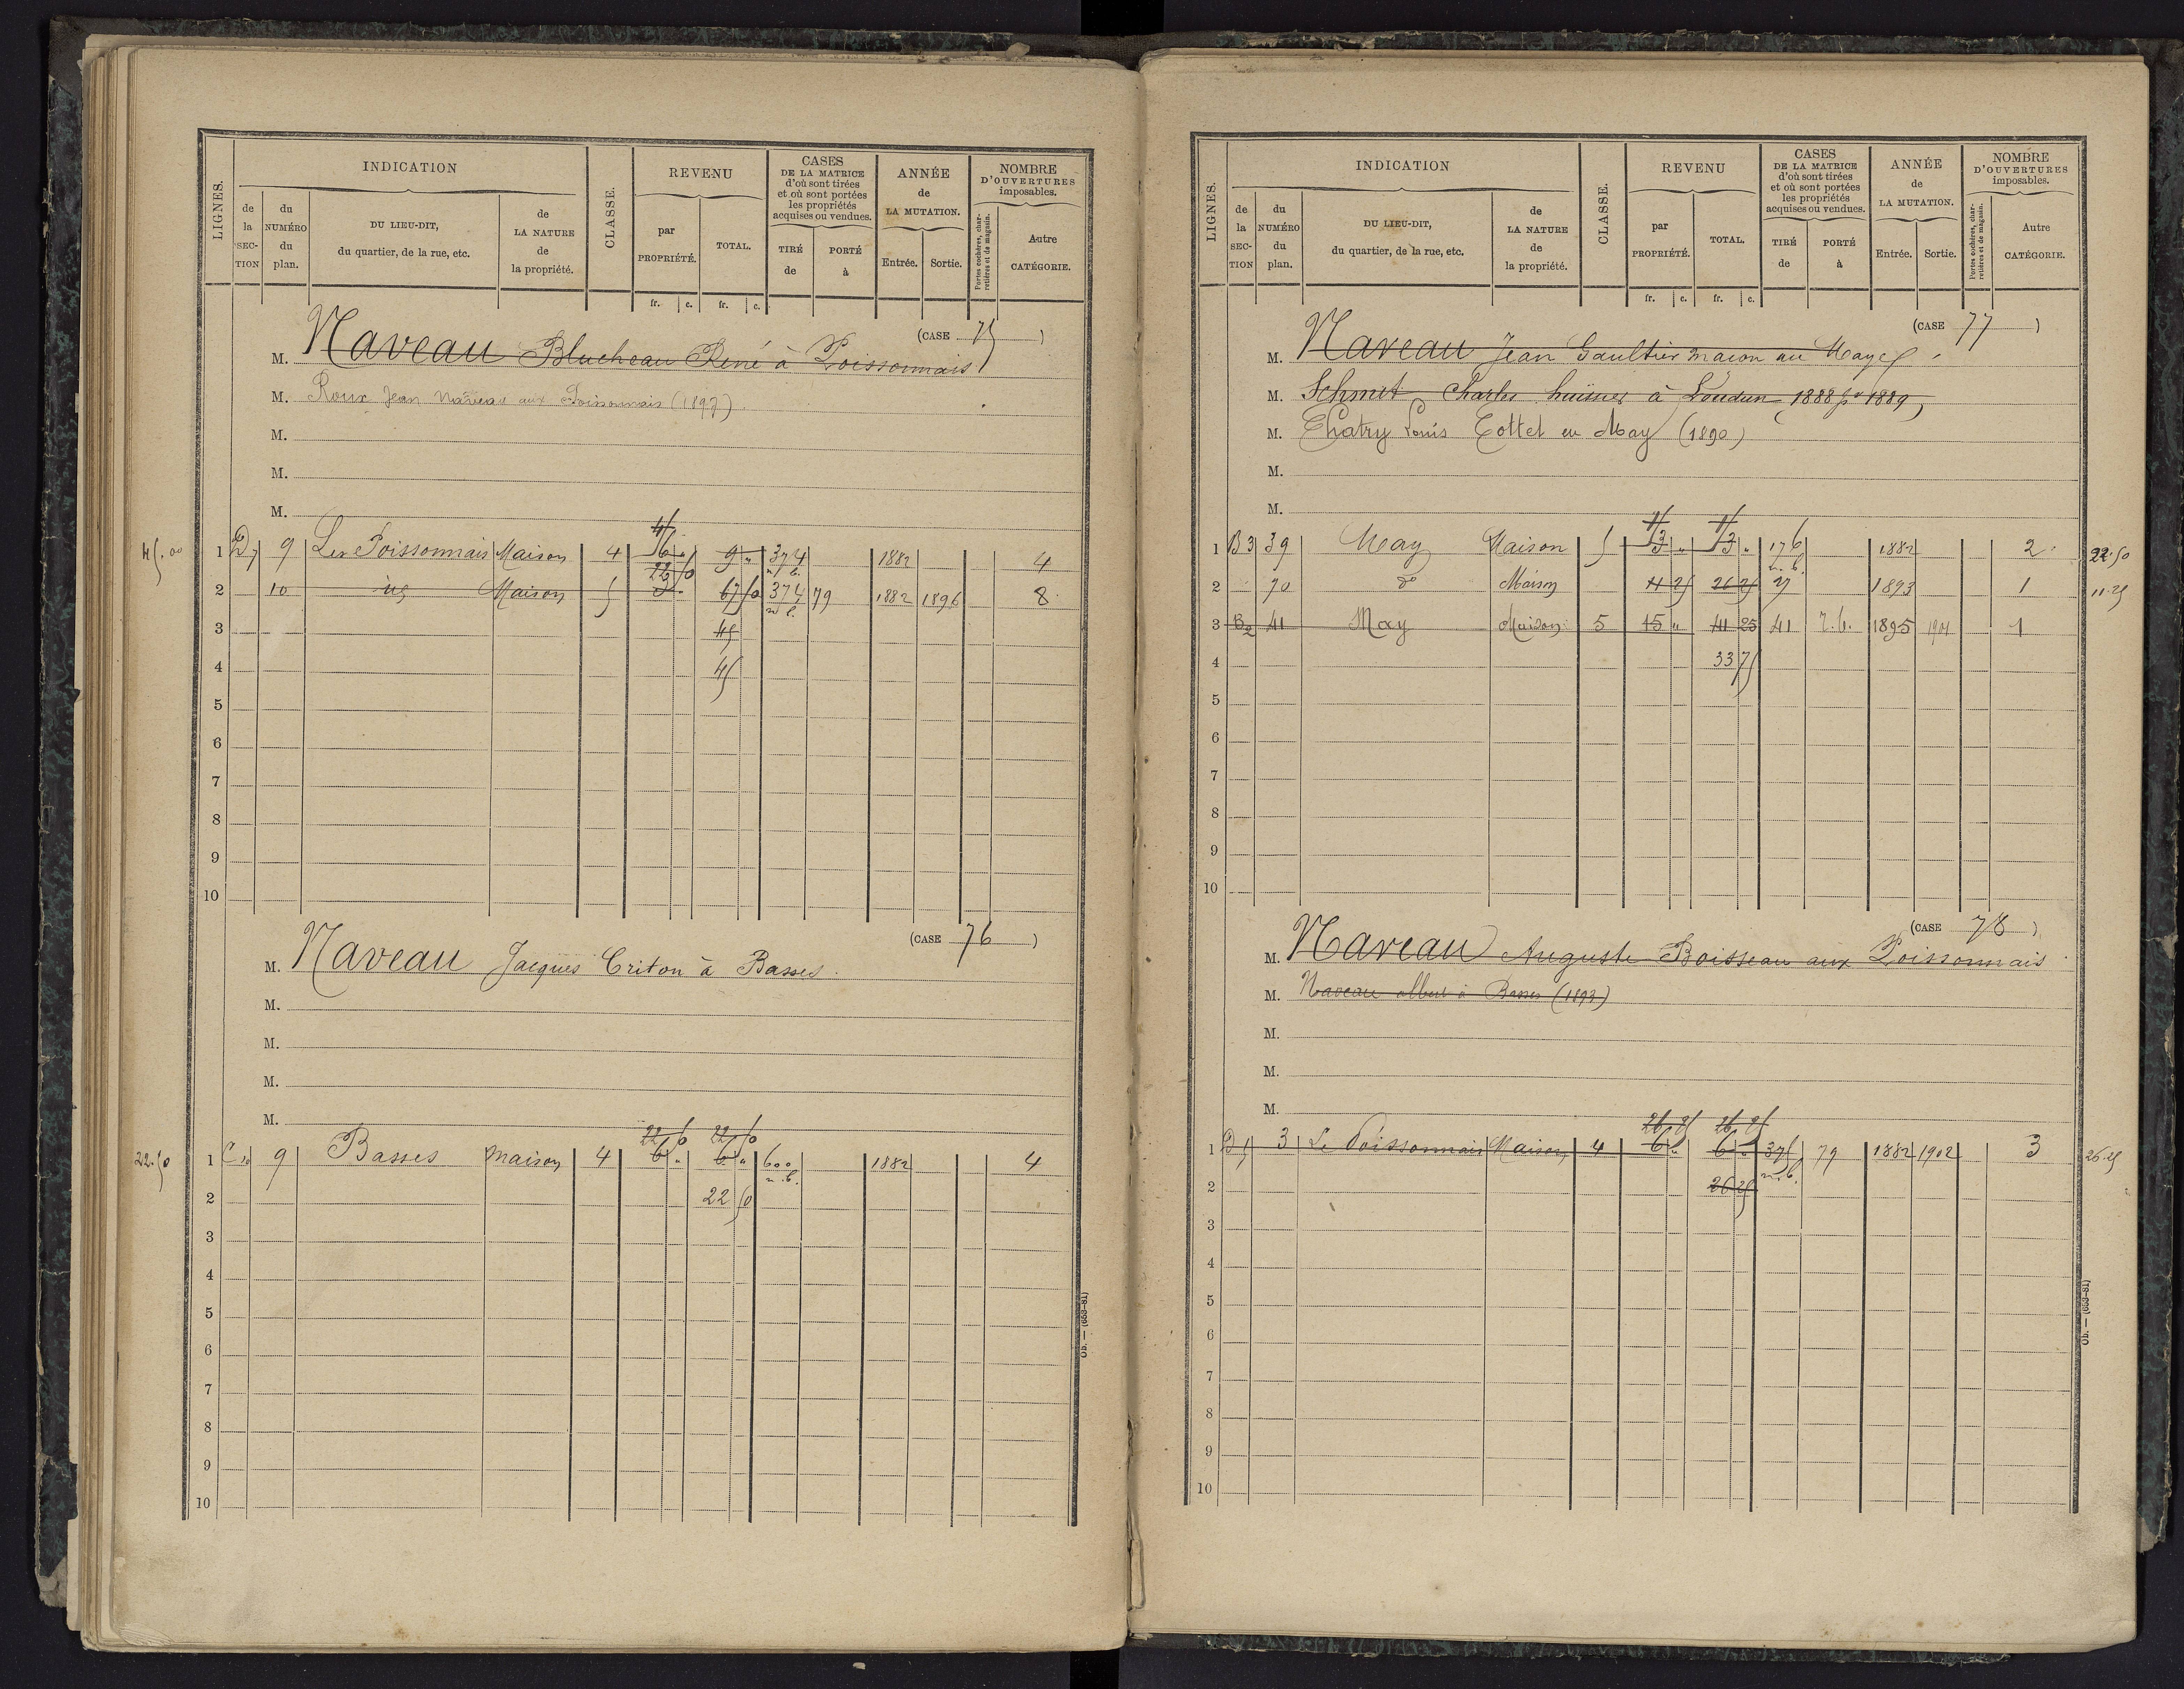 LIGNES.
INDICATION
de la SECTION
du NUMÉRO du plan.
DU LIEU-DIT, du quartier, de la rue, etc.
de LA NATURE de la propriété.
CLASSE.
REVENU
par PROPRIÉTÉ.
TOTAL.
CASES DE LA MATRICE d'où sont tirées et où sont portées les propriétés acquises ou vendues.
TIRÉ de
PORTÉ à
ANNÉE de LA MUTATION.
Entrée.
Sortie.
NOMBRE D'OUVERTURES imposables.
Portes cochères, charretières et de magasin.
Autre CATÉGORIE.
fr. c. fr. c.
(CASE 75)
M. Naveau Blucheau René à Poissonnais
M. Roux Jean Naveau aux Poissonnais (1897)
M.
M.
M.
45.00 1 D7 9 Les Poissonnais Maison 4 9 " 374 1882 4
n. b.
22 50
2 10 Maison 5 67 50 374 79 1882 1896 8
n. b.
3 45
4 45
5
6
7
8
9
10
(CASE 76)
M. Naveau Jacques Criton à Basses
M.
M.
M.
M.
22 50 22 50
22.50 1 C10 9 Basses Maison 4 6 " 6 " 600 1882 4
n. b.
2 22 50
3
4
5
6
7
8
9
10
Ob. — (653-81)
LIGNES.
INDICATION
de la SECTION
du NUMÉRO du plan.
DU LIEU-DIT, du quartier, de la rue, etc.
de LA NATURE de la propriété.
CLASSE.
REVENU
par PROPRIÉTÉ.
TOTAL.
CASES DE LA MATRICE d'où sont tirées et où sont portées les propriétés acquises ou vendues.
TIRÉ de
PORTÉ à
ANNÉE de LA MUTATION.
Entrée.
Sortie.
NOMBRE D'OUVERTURES imposables.
Portes cochères, charretières et de magasin.
Autre CATÉGORIE.
fr. c. fr. c.
(CASE 77)
M. Naveau Jean Gaultier maçon au May
M. Schmit Charles huissier à Loudun 1888 pr 1889
M. Chatry Louis Cottet au May (1890)
M.
M.
1 B3 39 May Maison 5 3 " 3 " 176 1882 2 22.50
n. b.
2 70 do Maison 11 25 26 25 27 1893 1 11.25
3 B2 41 May Maison 5 15 " 41 25 41 7.b. 1895 1901 1
4 33 75
5
6
7
8
9
10
(CASE 78)
M. Naveau Auguste Boisseau aux Poissonnais
M. Naveau albert à Basses (1893)
M.
M.
M.
26 25 26 25
1 D5 3 Le Poissonnais Maison 4 6 " 6 " 375 79 1882 1902 3 26.25
n. b.
2 26 25
3
4
5
6
7
8
9
10
Ob. — (653-81)